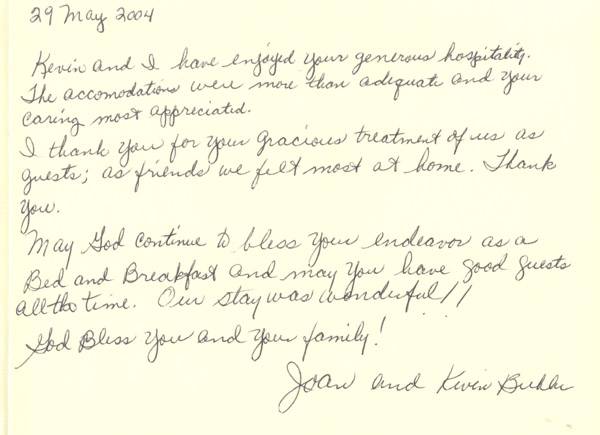 29 May 2004
Kevin and I have enjoyed your generous hospitality.
The accomodations were more than adequate and your
caring most appreciated.
I thank you for your gracious treatment of us as
guests; as friends we felt most at home. Thank
you.
May God continue to bless your endeavor as a
Bed and Breakfast and may you have good guests
all the time. Our stay was wonderful!!
God Bless you and your family!
Joan and Kevin